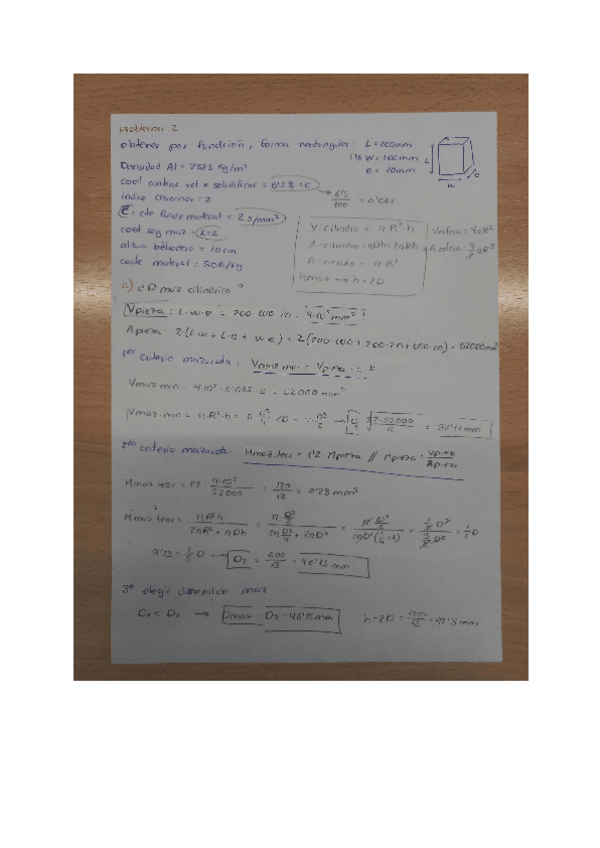 Problema 2
obtener por fundición, forma rectangular: L = 200mm
W = 100mm
e = 20mm
L
w
e
Densidad Al = Kg/m³
coef contrac vol solidificar = 6'5% = c → 6'5/100 = 0'065
índice Chvorinov = 2
C = cte fundir material = 2 s/mm²
coef seg maz = k=2
altura bebedero = 10cm
coste material = 50€/Kg
V. cilindro = π·R²·h
A. cilindro = πDh+2πR²
A. círculo = π·R²
hmaz → h=2D
V esfera: 4πR²
A esfera: 4/3 πR²
a) ¿D maz cilíndrica?
Vpieza: L·w·e = 200·100·20 = 4·10⁵ mm³
Apieza: 2(Lw + L·e + we) = 2(200·100 + 200·20 + 100·20) = 52000mm²
1er criterio mazarota: Vmaz min = Vpieza · c · k
Vmaz min = 4·10⁵ · 0'065 · 2 = 52000 mm³
Vmaz min = π·R²·h = π·D²/4·2D = π·D³/2 → D₁ = ∛(2·52000/π) = 32'11mm
2do criterio mazarota: Mmaz teor = 1'2 · Mpieza // Mpieza = Vpieza/Apieza
Mmaz teor = 1'2 · 4·10⁵/52000 = 120/13 = 9'23 mm
Mmaz teor = πR²h/(2πR² + πDh) = = = = 1/5 D
9'23 = 1/5 D → D₂ = 600/13 = 46'15 mm
3º elegir dimensión maz
D₁ < D₂ → Dmaz = D₂ = 46'15 mm h = 2D = 1200/13 = 92'3 mm